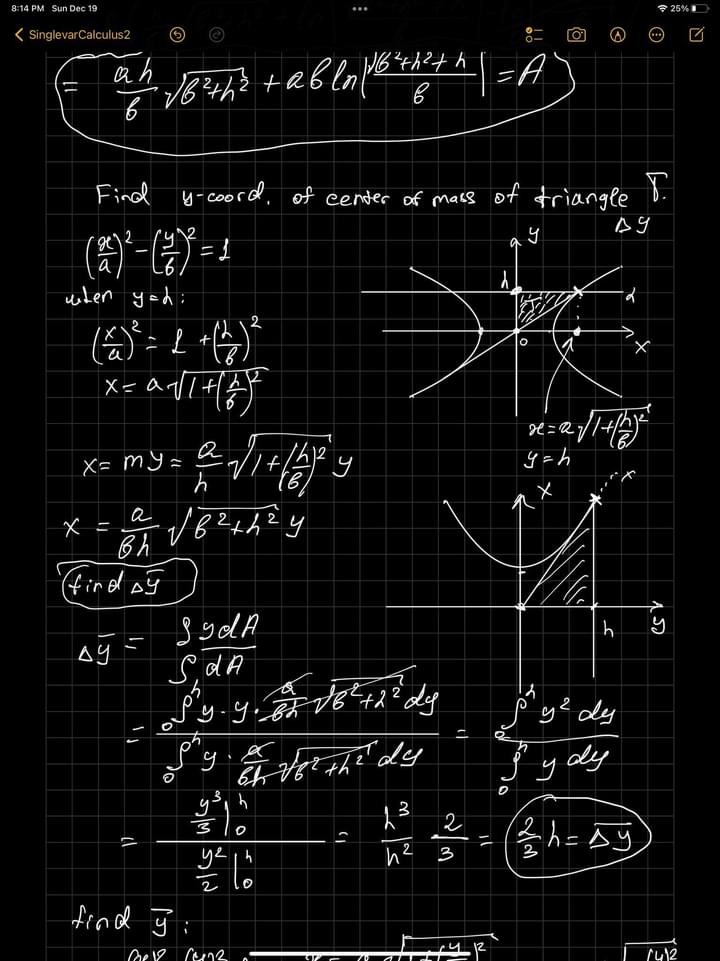 8:14 PM Sun Dec 19
25%
SinglevarCalculus2
= ah/b √(b²+h²) + ab ln|(√(b²+h²)+h)/b| = A
Find y-coord. of center of mass of triangle T.
Δy
(x/a)² - (y/b)² = 1
when y=h:
(x/a)² = 1 + (h/b)²
x = a√(1+(h/b)²)
y
h
T
0
x
x = a√(1+(h/b)²)
y = h
x = my = a/h √(1+(h/b)²) y
x = a/(bh) √(b²+h²) y
x
h
y
find Δȳ
Δȳ = ∫ydA / ∫dA
= ₀∫ʰ y·y·a/(bh) √(b²+h²) dy / ₀∫ʰ y·a/(bh) √(b²+h²) dy = ₀∫ʰ y² dy / ₀∫ʰ y dy
= (y³/3 |₀ʰ) / (y²/2 |₀ʰ) = h³/h² 2/3 = 2/3 h = Δȳ
find ȳ: